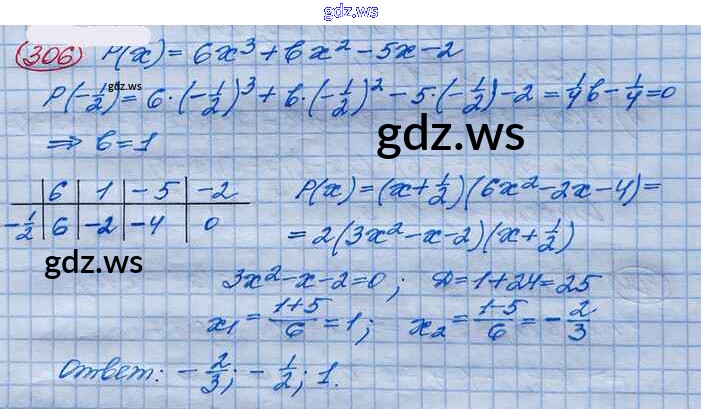 gdz.ws
306 P(x) = 6x³ + bx² - 5x - 2
gdz.ws
P(-1/2) = 6·(-1/2)³ + b·(-1/2)² - 5·(-1/2) - 2 = 1/4 b - 1/4 = 0
gdz.ws
⇒ b = 1
6 | 1 | -5 | -2
-1/2 | 6 | -2 | -4 | 0
P(x) = (x + 1/2)(6x² - 2x - 4) =
= 2(3x² - x - 2)(x + 1/2)
gdz.ws
3x² - x - 2 = 0; D = 1 + 24 = 25
x₁ = (1+5)/6 = 1; x₂ = (1-5)/6 = -2/3
Ответ: -2/3; -1/2; 1.